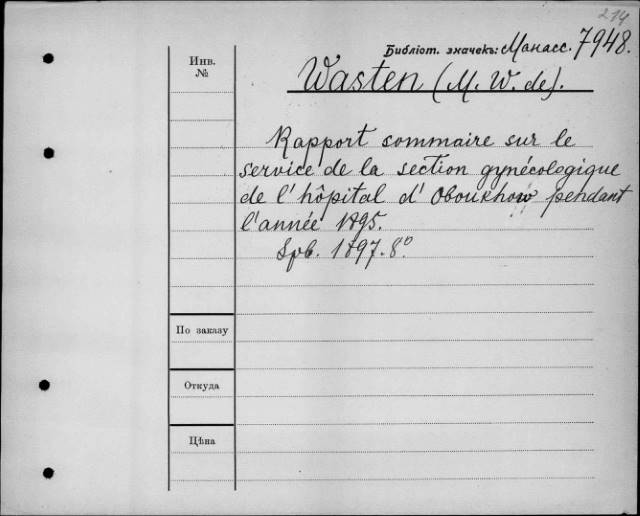 214
Библіот. значекъ: Манасс. 7948.
Инв.
№
Wasten (M. W. de).
Rapport sommaire sur le
service de la section gynécologique
de l'hôpital d'Oboukhow pendant
l'année 1895.
Spb. 1897. 8°
По заказу
Откуда
Цѣна